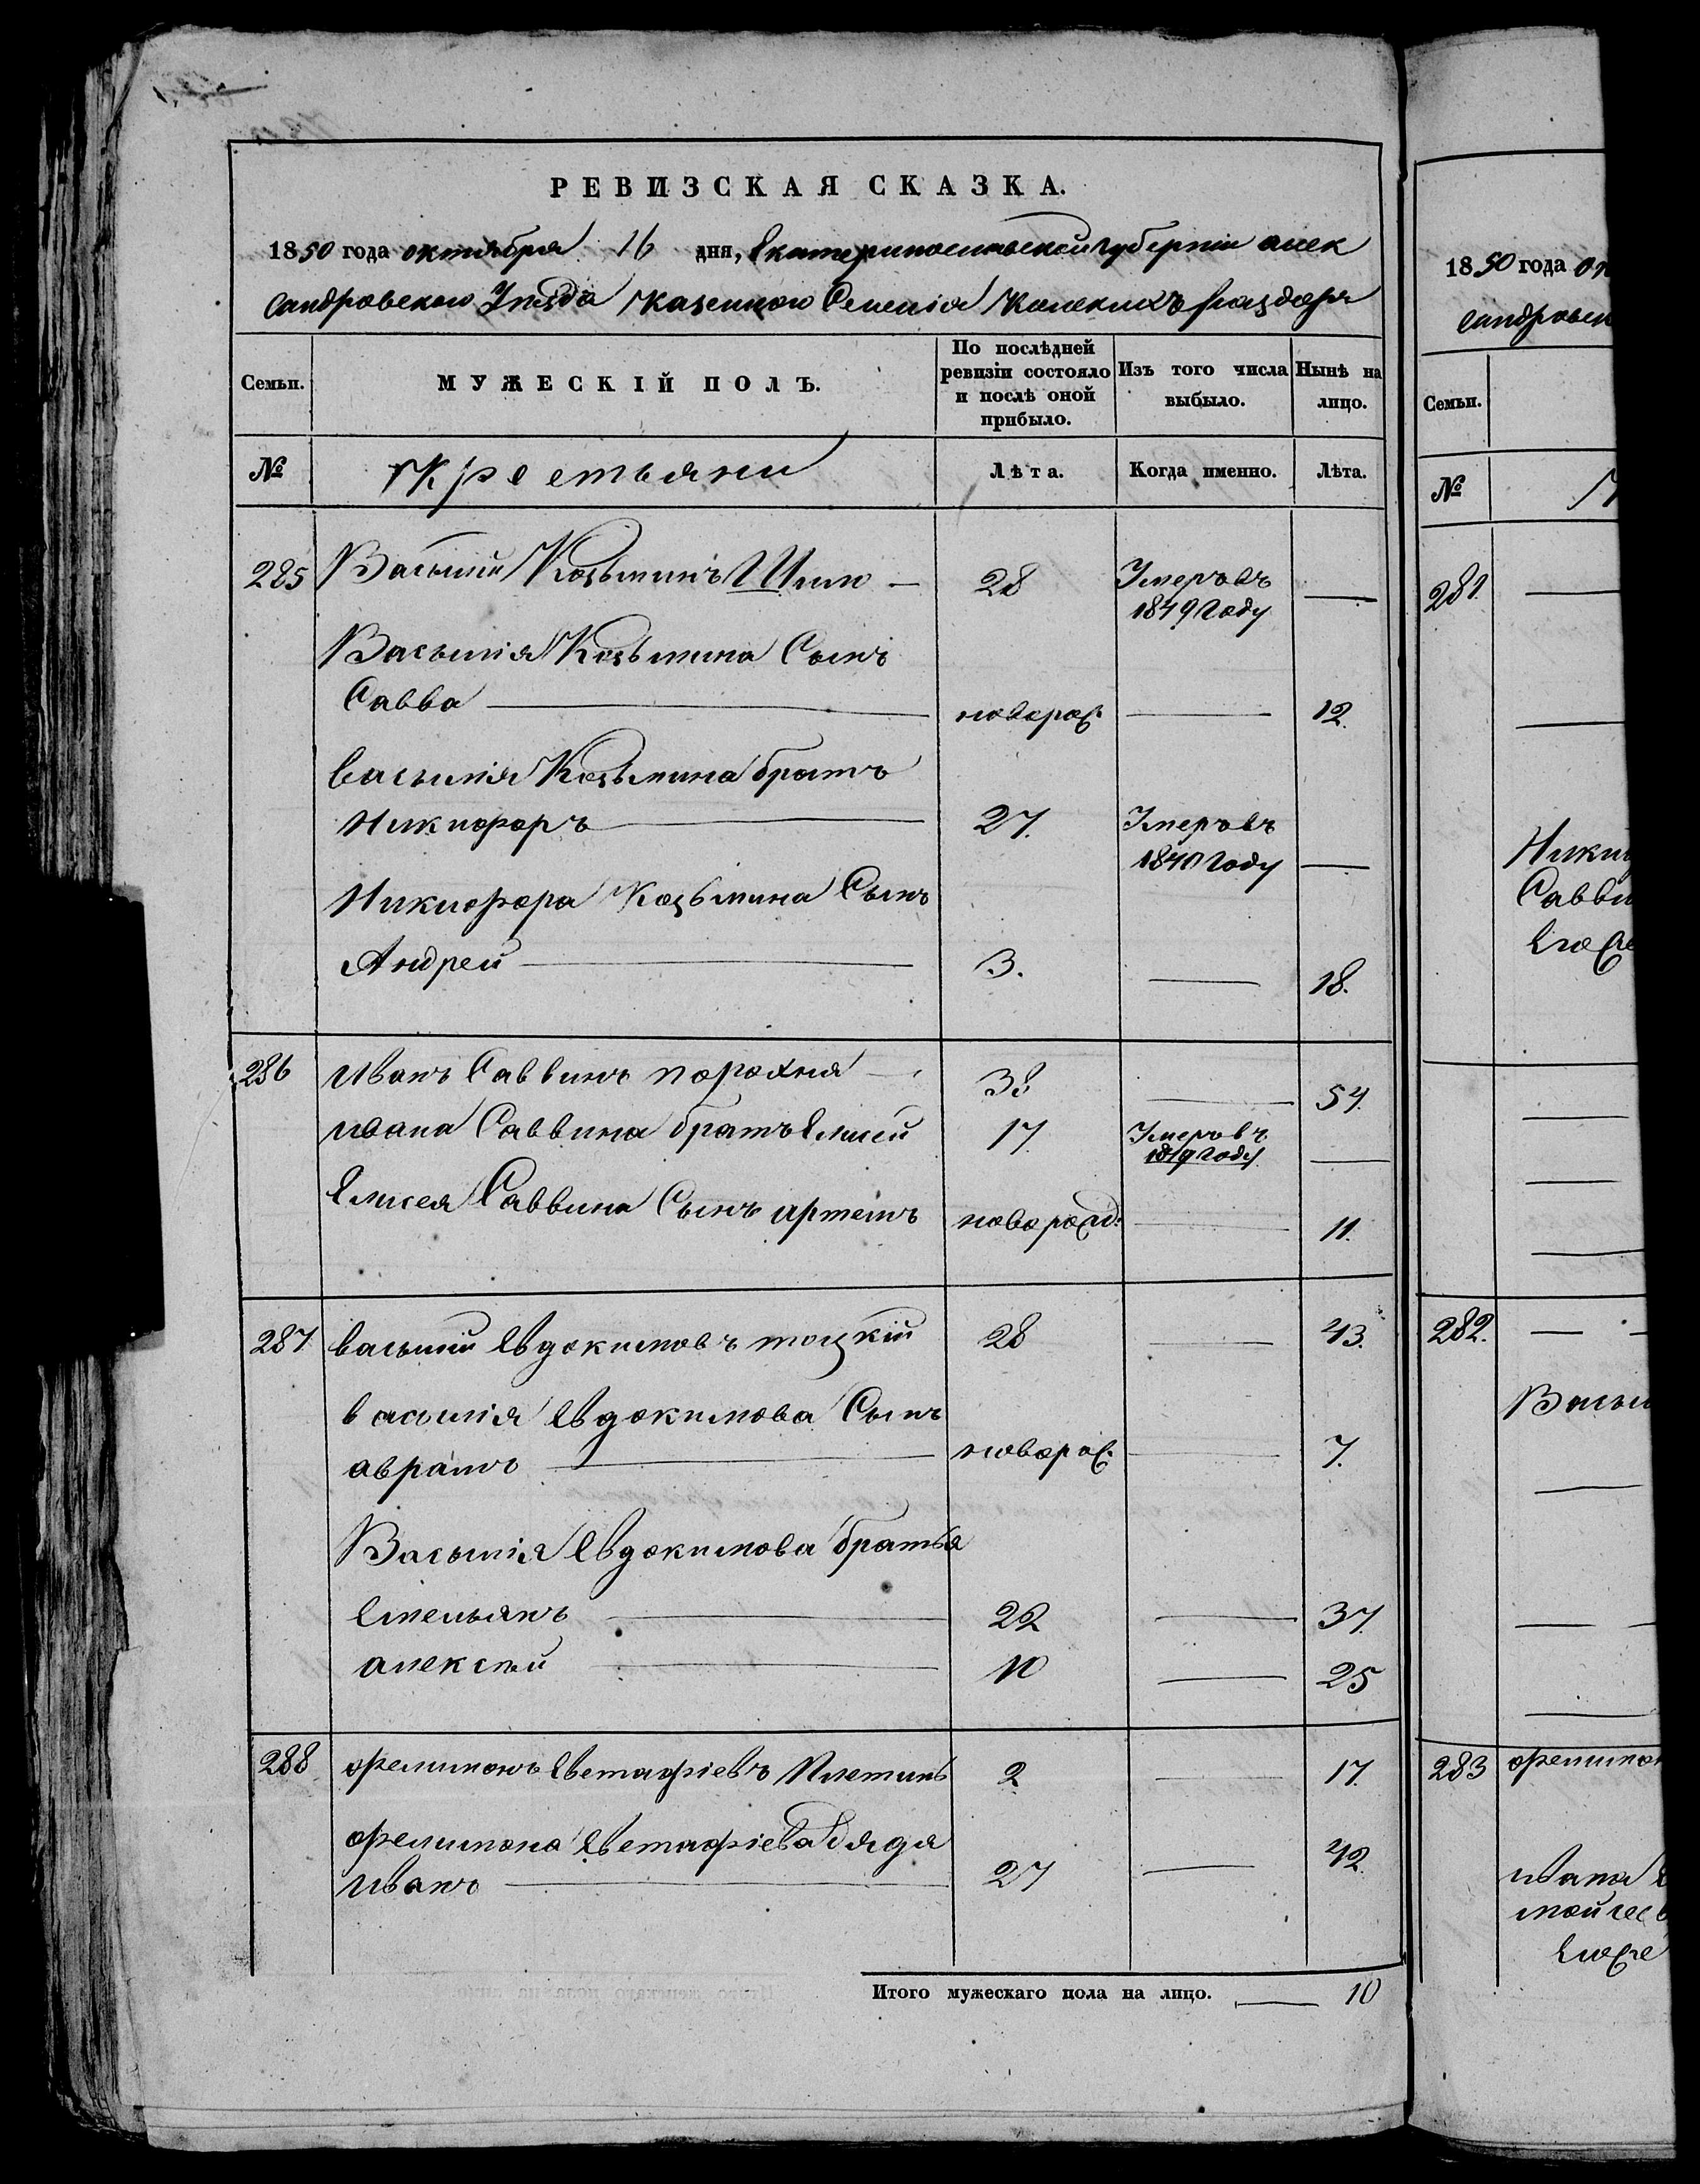 РЕВИЗСКАЯ СКАЗКА.
1850 года октября 16 дня, Екатеринославской губерніи алек
сандровскаго Уезда Казенного Селенія Конскихъ Раздоръ
Семьи. МУЖЕСКІЙ ПОЛЪ. По послѣдней ревизіи состояло и послѣ оной прибыло. Изъ того числа выбыло. Нынѣ на лицо.
№ Крестьяни Лѣта. Когда именно. Лѣта.
285 Василий Козьминъ 28 Умеръ въ 1849 году —
Василія Козьмина Сынъ
Савва — новорож. — 12.
василія Козьмина братъ
Никифоръ — 27. Умеръ въ 1840 году —
Никифора Козьмина Сынъ
Андрей — 3. — 18.
286 Иванъ Саввинъ порохня — 38 — 54.
ивана Саввина братъ Елисей 17. Умеръ въ 1849 году —
Елисея Саввина Сынъ артемъ новорожд. — 11.
287 василий Евдокимовъ тоцкій 28 — 43.
василія Евдокимова Сынъ
аврамъ — новорож. — 7.
Василія Евдокимова братья
Емельянъ — 22 — 37.
алексѣй — 10 — 25
288 филимонъ Евстафіевъ Плетинь 2 — 17.
филимона Евстафіева дядя
Иванъ — 27 — 42.
Итого мужескаго пола на лицо. — 10
1850 года ок
сандровск
Семьи.
№
281 —
Саввин
282. —
Васил
283 филимон
ивана